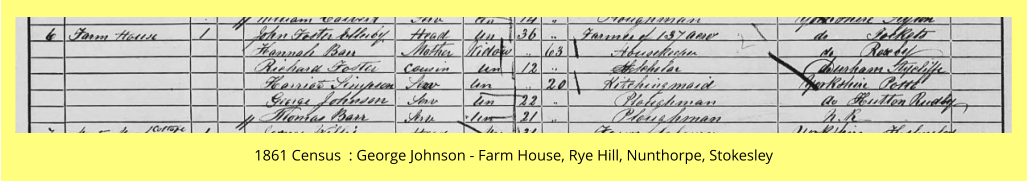 William Serv Un 19 Ploughman Yorkshire
6 Farm House 1 John Foster Head Un 36 " Farmer of 137 acres do
Hannah Barr Mother Widow " 63 Housekeeper do
Richard Foster cousin Un 12 " Scholar Durham
Harriet Simpson Serv Un " 20 Kitchingmaid Yorkshire
George Johnson Serv Un 22 " Ploughman do Hutton Rudby
Thomas Barr Serv Un 21 " Ploughman N.K.
Cottage 1
1861 Census : George Johnson - Farm House, Rye Hill, Nunthorpe, Stokesley